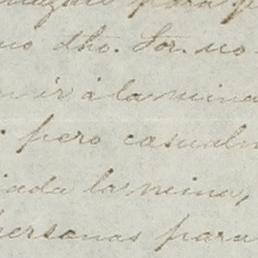 para
no dho. Sor. no
ir á la mina
pero casualm
iada la mina,
personas para